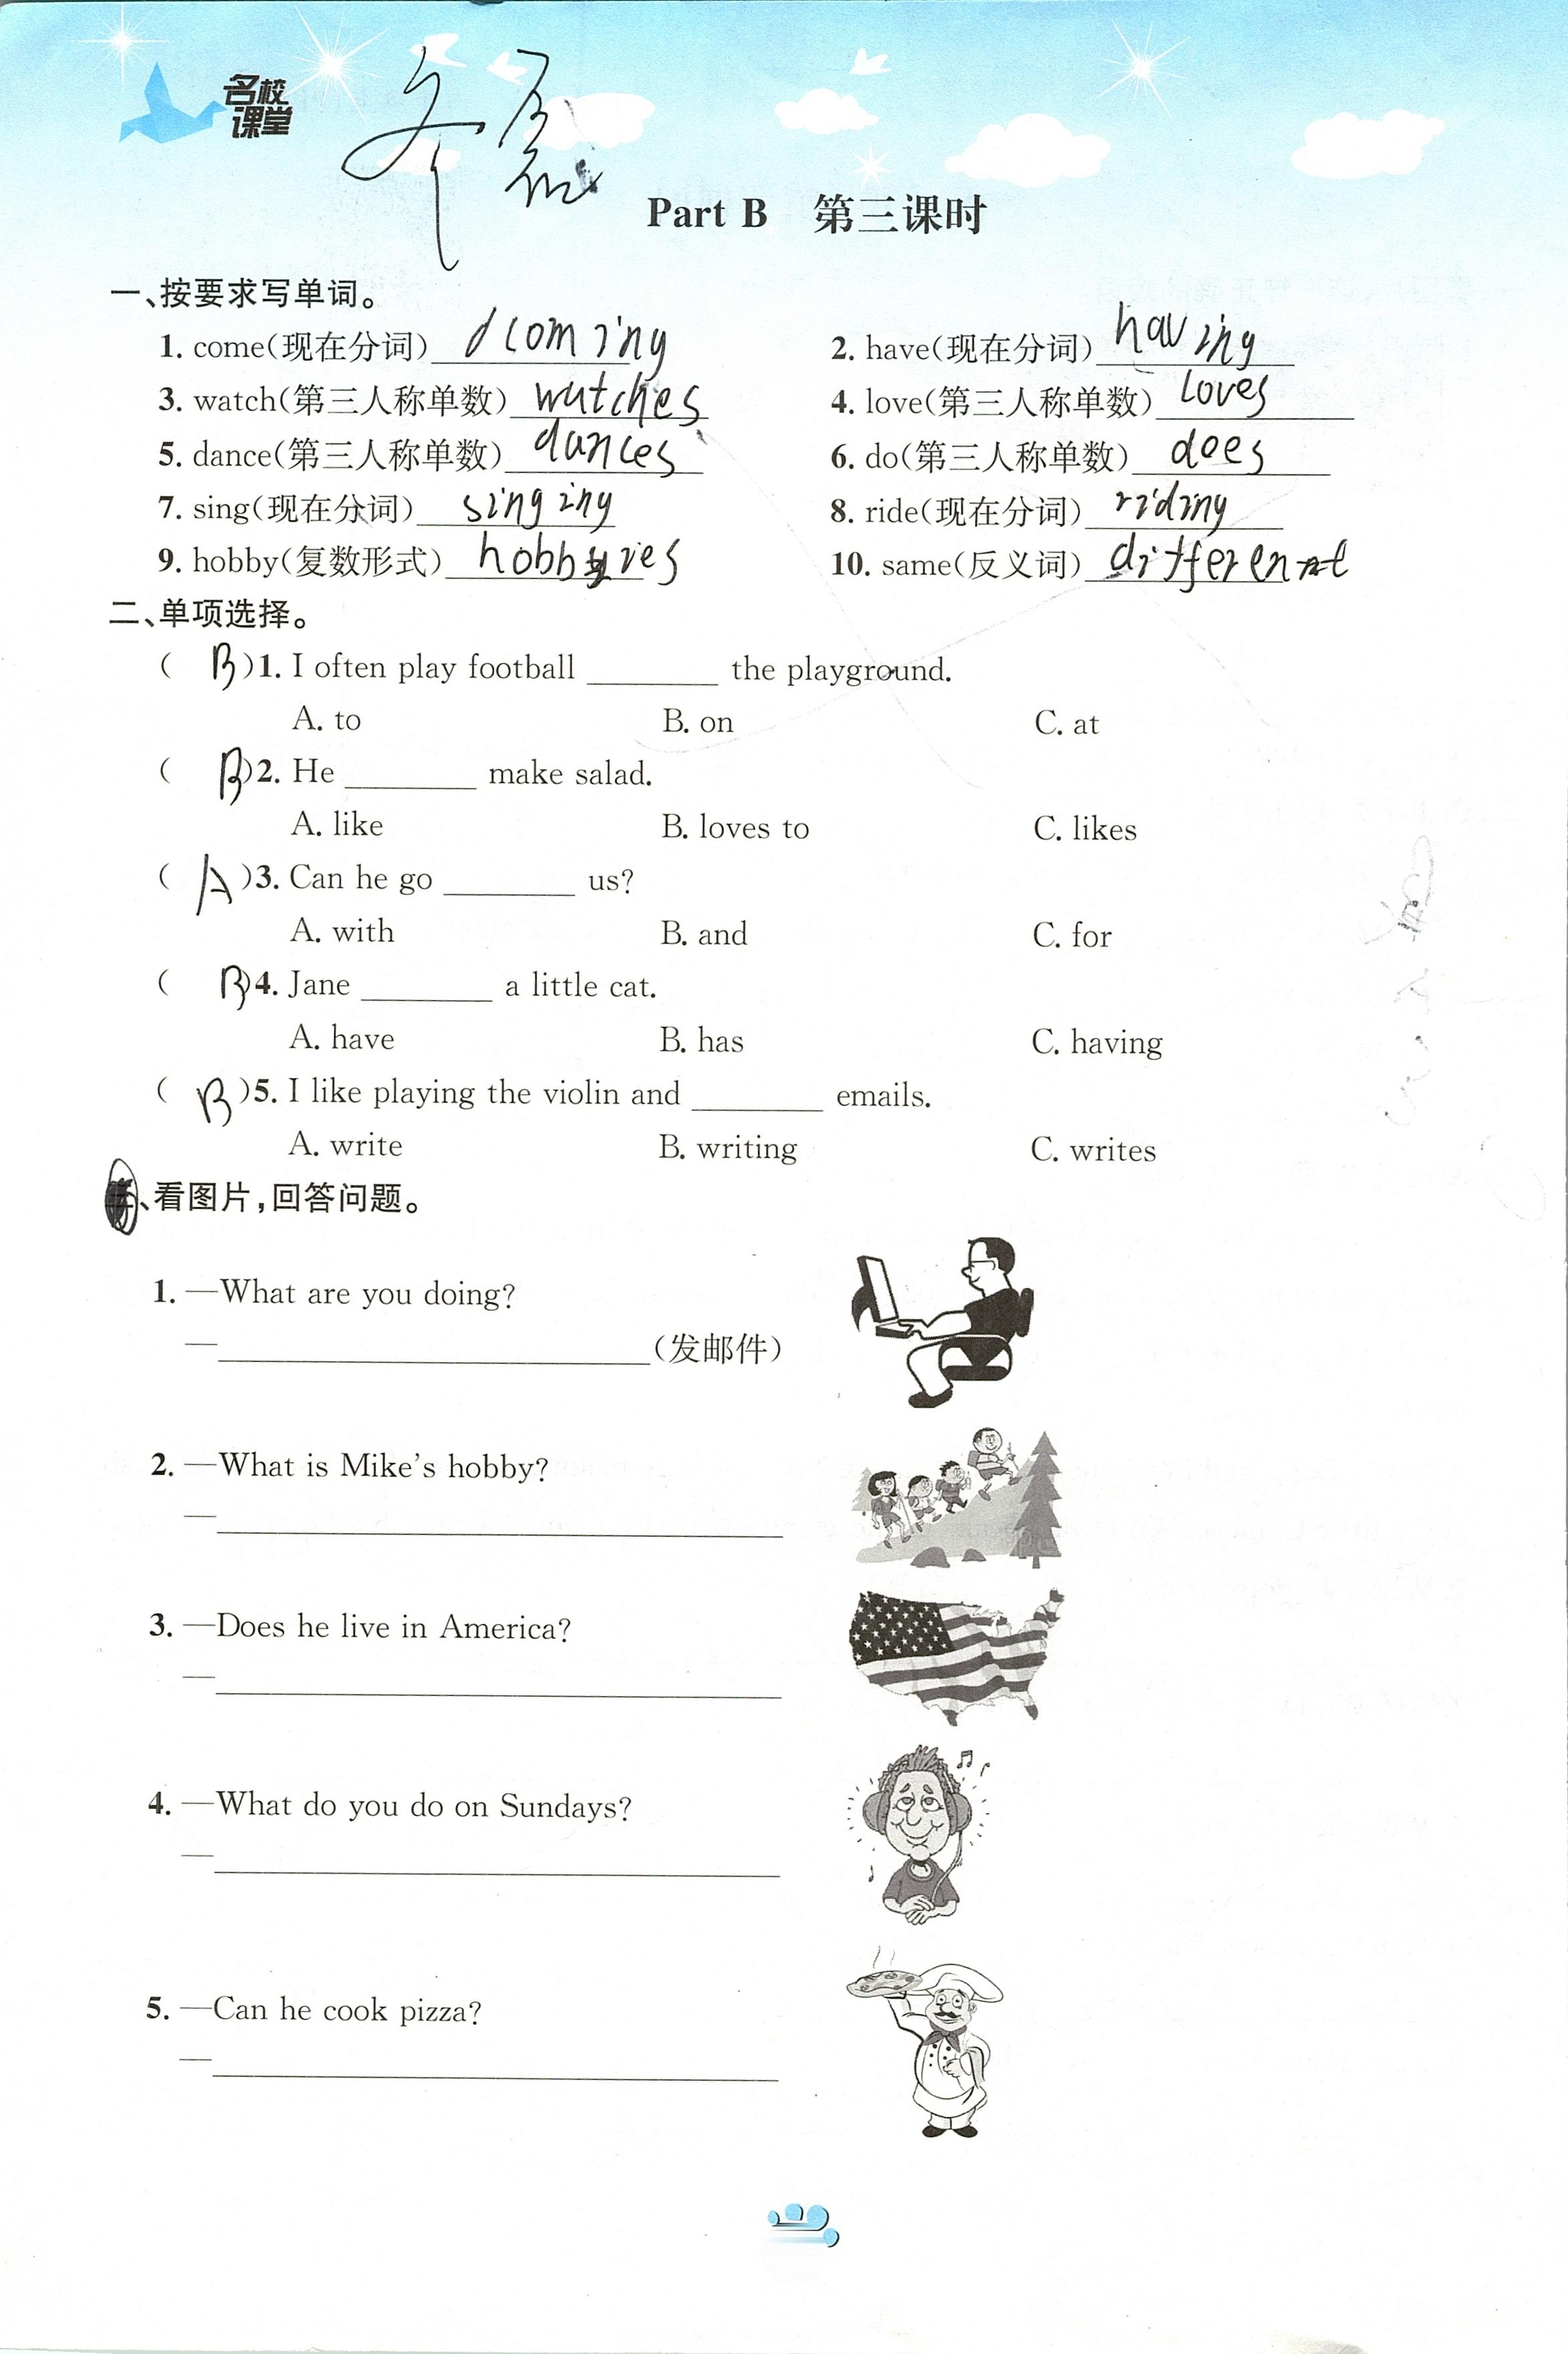 名校
课堂
Part B 第三课时
一、按要求写单词。
1. come(现在分词) coming 2. have(现在分词) having
3. watch(第三人称单数) watches 4. love(第三人称单数) loves
5. dance(第三人称单数) dances 6. do(第三人称单数) does
7. sing(现在分词) singing 8. ride(现在分词) riding
9. hobby(复数形式) hobbies 10. same(反义词) different
二、单项选择。
( B )1. I often play football ________ the playground.
A. to B. on C. at
( B )2. He ________ make salad.
A. like B. loves to C. likes
( A )3. Can he go ________ us?
A. with B. and C. for
( B )4. Jane ________ a little cat.
A. have B. has C. having
( B )5. I like playing the violin and ________ emails.
A. write B. writing C. writes
、看图片,回答问题。
1. —What are you doing?
—________(发邮件)
2. —What is Mike's hobby?
—________
3. —Does he live in America?
—________
4. —What do you do on Sundays?
—________
5. —Can he cook pizza?
—________